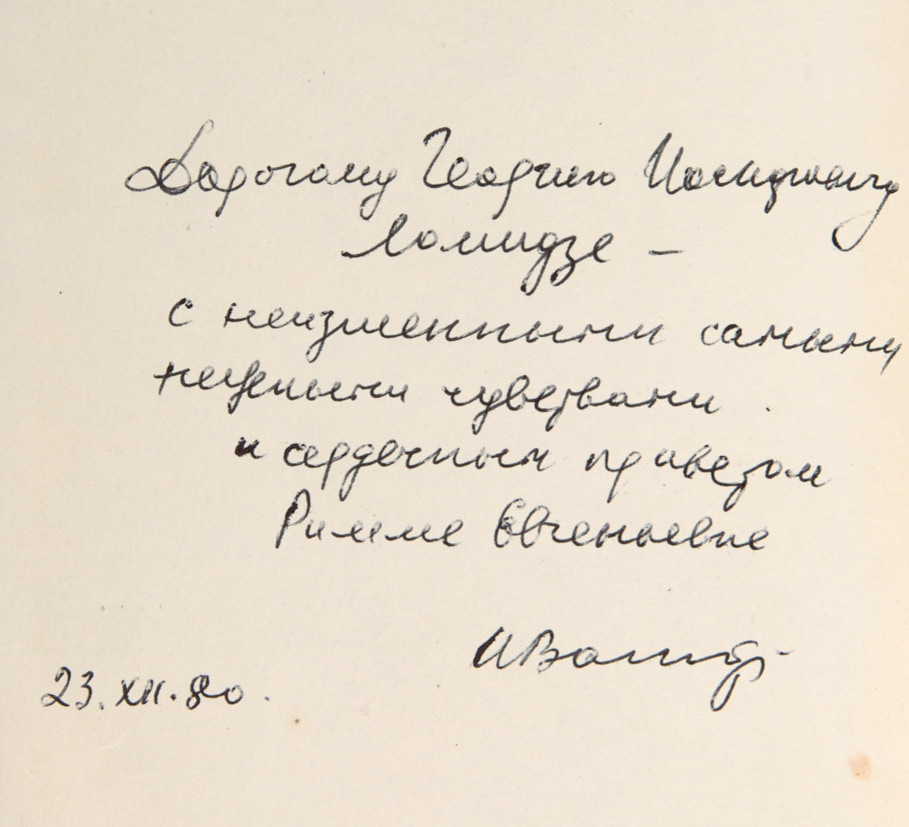 Дорогому Георгию Иосифовичу
Ломидзе –
с неизменными самыми
нежными чувствами
и сердечным приветом
Римме Евгеньевне
23.XII.80.